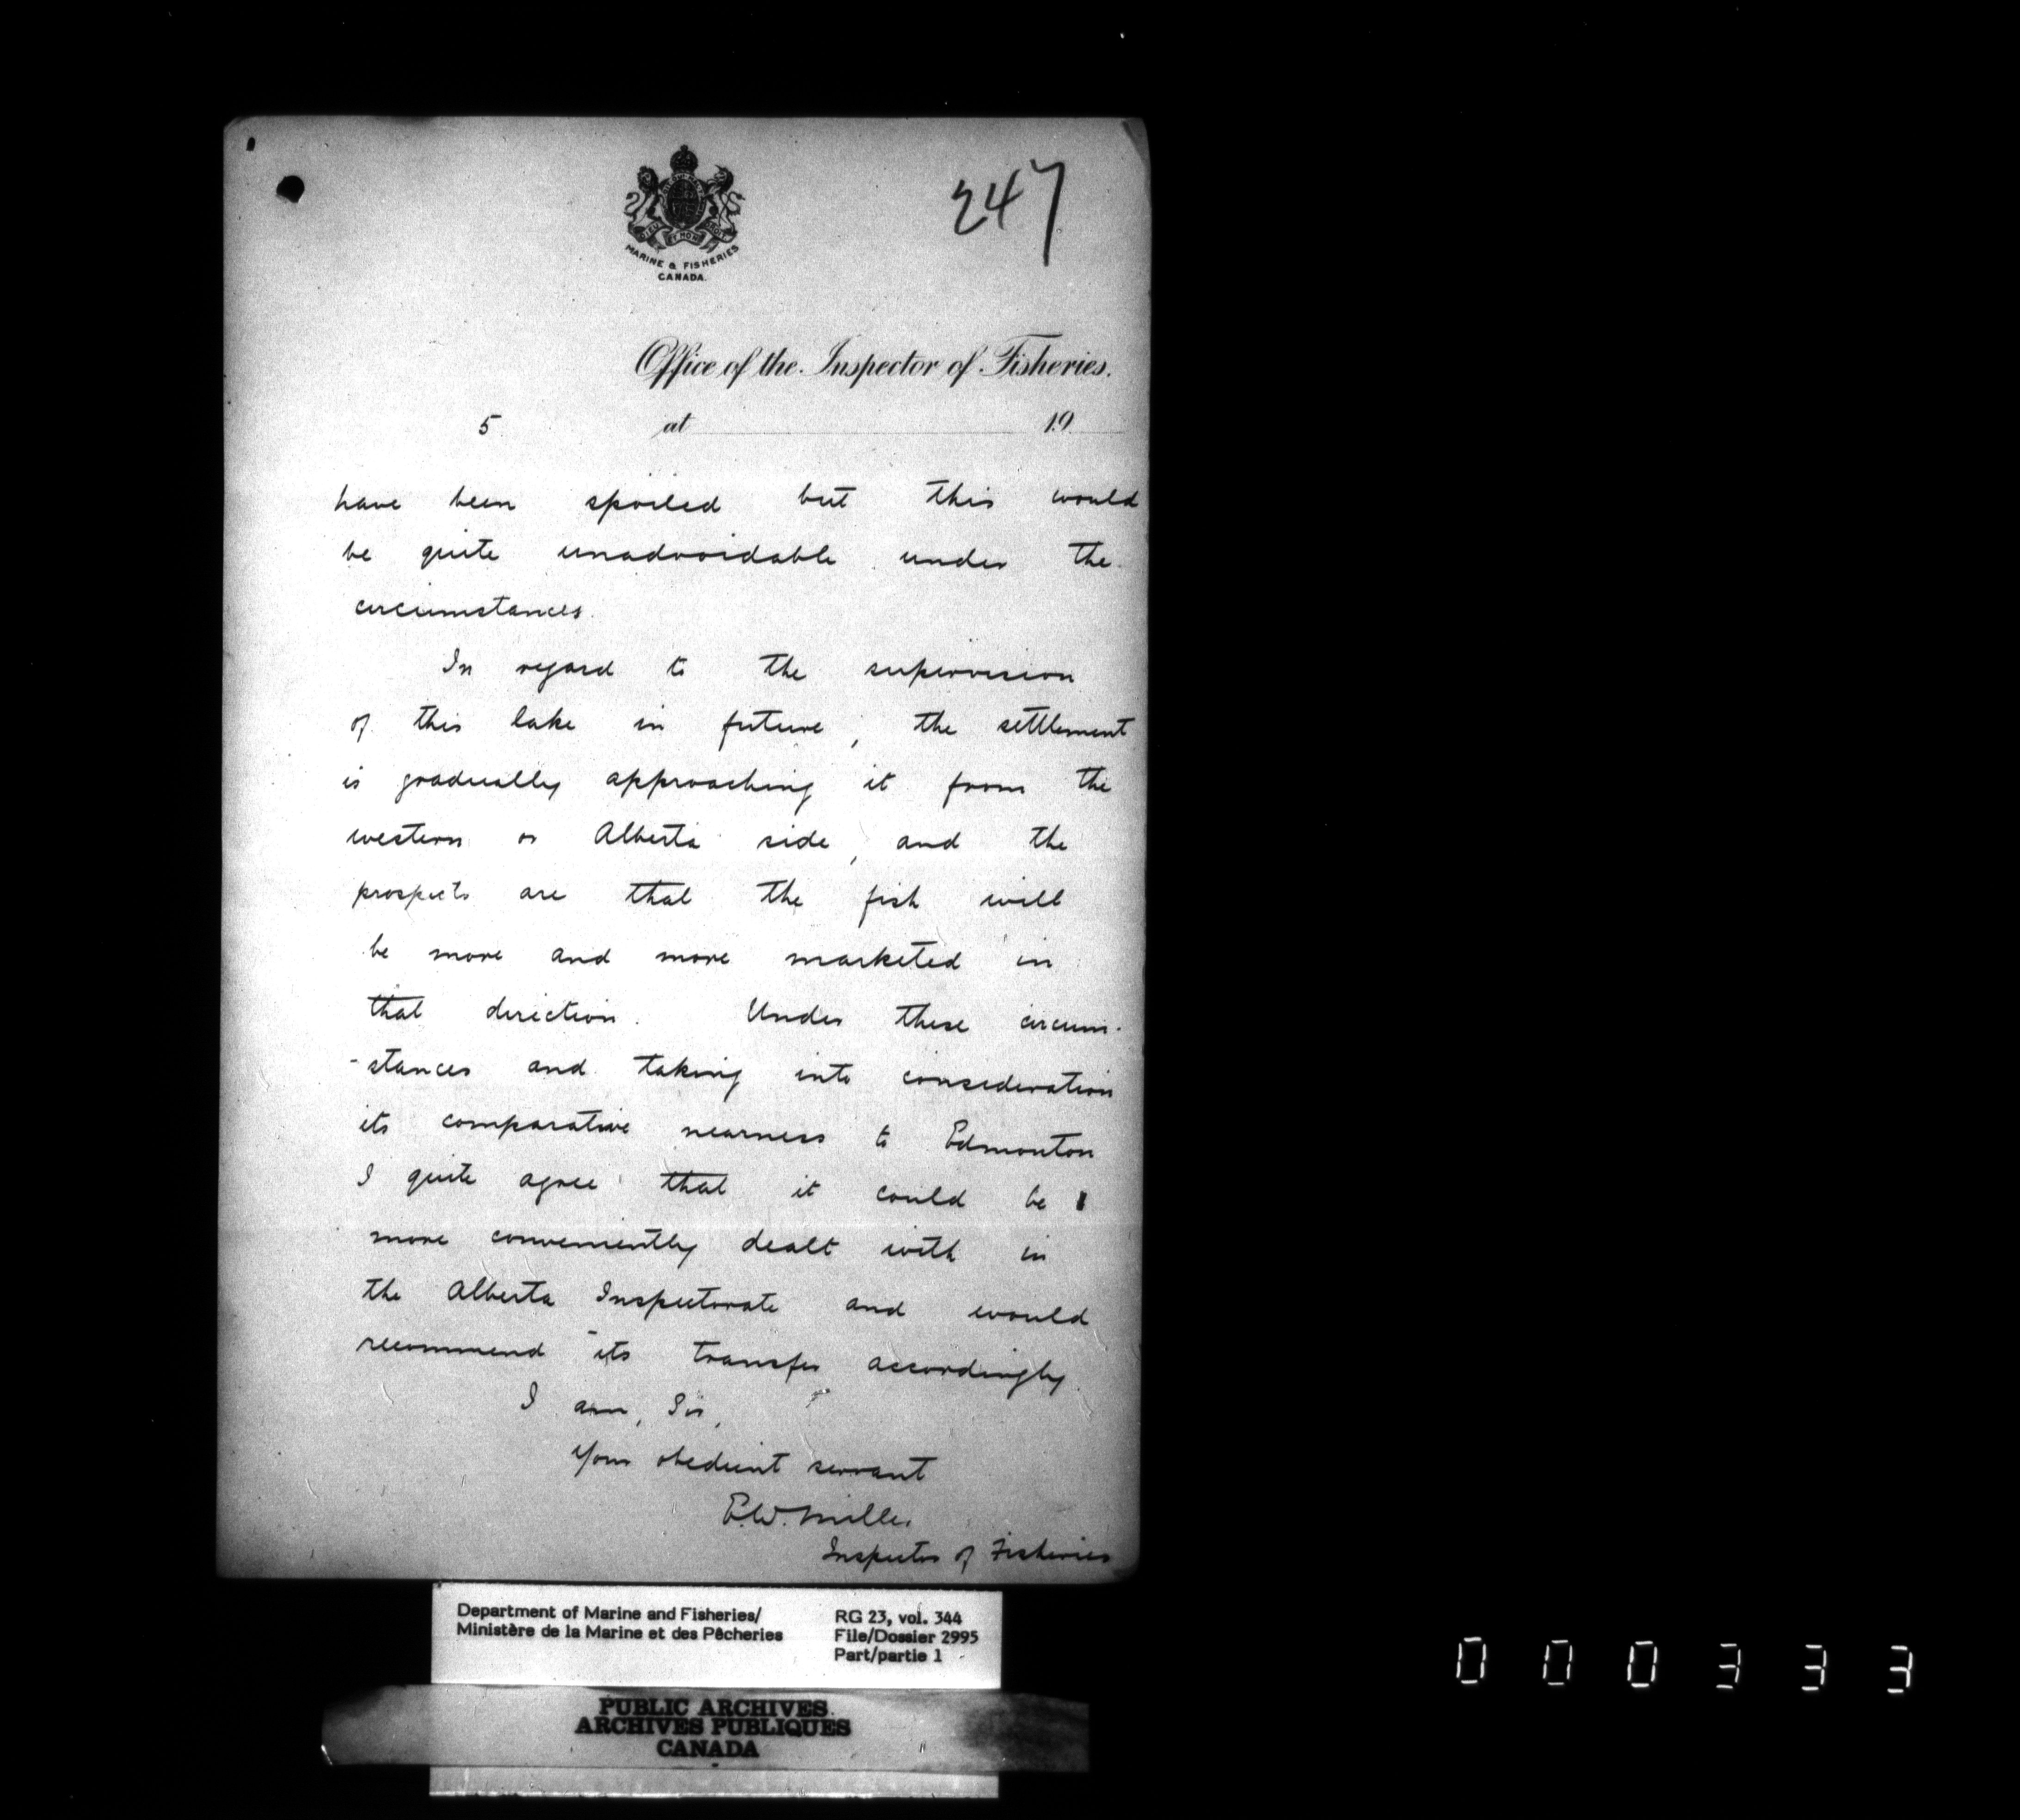 247
DIEU ET MON DROIT
MARINE & FISHERIES
CANADA.
Office of the Inspector of Fisheries.
5 at 19
have been spoiled but this would
be quite unadvoidable under the
circumstances.
In regard to the supervision
of this lake in future, the settlement
is gradually approaching it from the
western or Alberta side, and the
prospects are that the fish will
be more and more marketed in
that direction. Under these circum-
-stances and taking into consideration
its comparative nearness to Edmonton
I quite agree that it could be
more conveniently dealt with in
the Alberta Inspectorate and would
recommend its transfer accordingly.
I am, Sir,
Your obedient servant
E.W. Miller
Inspector of Fisheries
Department of Marine and Fisheries/
Ministère de la Marine et des Pêcheries
RG 23, vol. 344
File/Dossier 2995
Part/partie 1
PUBLIC ARCHIVES
ARCHIVES PUBLIQUES
CANADA
000333